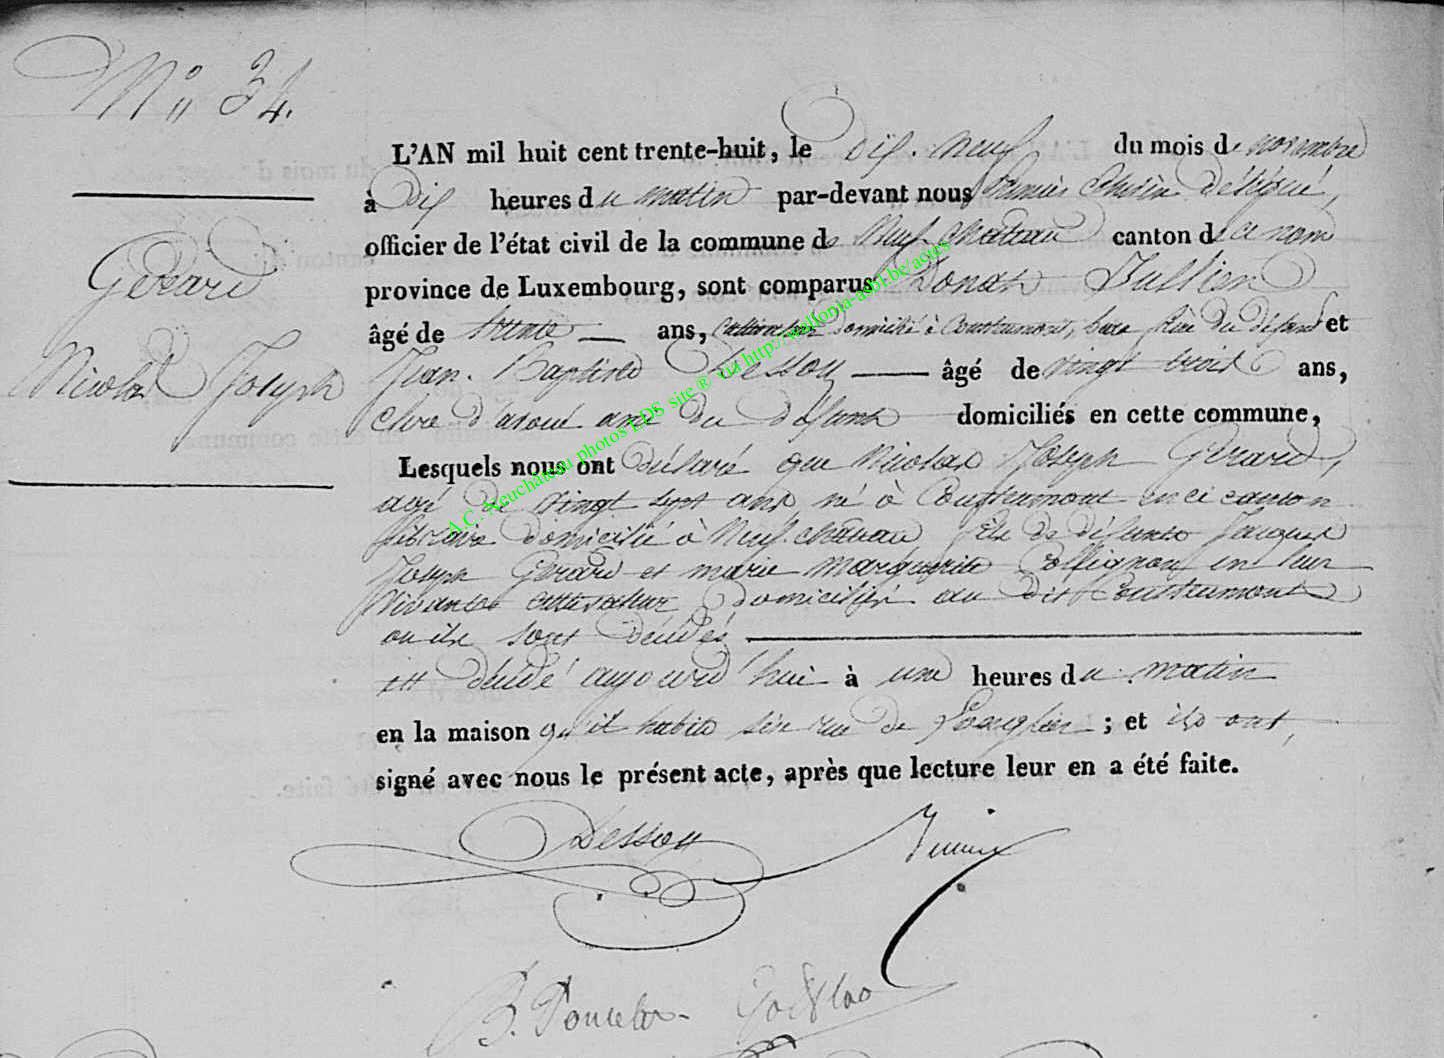 N° 34.
L'AN mil huit cent trente-huit, le Dix-Neuf du mois de novembre
à Dix heures du matin par-devant nous Premier Echevin Délégué,
officier de l'état civil de la commune de Neuf-chateau canton de ce nom
province de Luxembourg, sont comparus Donat Jullien
âgé de trente ans, cultivateur domicilié à Coustumont, beau frère du défunt et
Gérard
Nicolas Joseph
Jean-Baptiste Dessoy âgé de vingt trois ans,
clerc d'avoué ami du défunt domiciliés en cette commune,
Lesquels nous ont déclaré que Nicolas Joseph Gérard,
agé de vingt sept ans né à Coustumont en ce canton
domicilié à Neuf-chateau fils de défunts Jacques
Joseph Gérard et marie Marguerite Collignon en leur
vivants cultivateurs domiciliés au dit Coustumont
où ils sont décédés
est décédé aujourd'hui à une heures du matin
en la maison qu'il habite sise rue de Longlier ; et ils ont
signé avec nous le présent acte, après que lecture leur en a été faite.
Dessoy
B. Poncelet
A.C. Neuchâteau photos LDS site ® via http://wallonia-asbl.be/actes